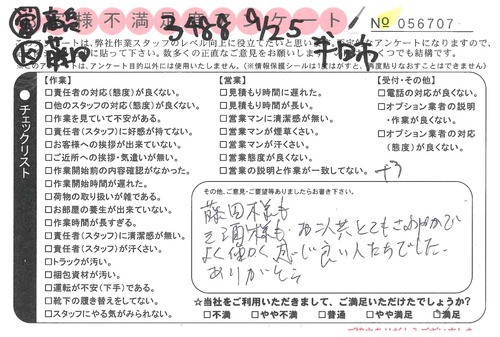 様不満足度アンケート！
3488 9/25
№ 056707
アンケートは、弊社作業スタッフのレベル向上に役立てたいと思い
に貼って下さい。数多くの正直なご意見をお願いします
このアンケートは、アンケート目的以外には使用いたしません。
チェックリスト
【作業】
□責任者の対応(態度)が良くない。
□他のスタッフの対応(態度)が良くない。
□作業を見ていて不安がある。
□責任者(スタッフ)に好感が持てない。
□お客様への挨拶が出来ていない。
□ご近所への挨拶・気遣いが無い。
□作業開始前の内容確認がなかった。
□作業開始時間が遅れた。
□荷物の取り扱いが雑である。
□お部屋の養生が出来ていない。
□作業時間が長すぎる。
□責任者(スタッフ)に清潔感が無い。
□責任者(スタッフ)が汗くさい。
□トラックが汚い。
□梱包資材が汚い。
□運転が不安(下手)である。
□靴下の履き替えをしてない。
□スタッフにやる気がみられない。
【営業】
□見積もり時間に遅れた。
□見積もり時間が長い。
□営業マンに清潔感が無い。
□営業マンが煙草くさい。
□営業マンが汗くさい。
□営業態度が良くない。
□営業の説明と作業が一致してない。
【受付・その他】
□電話の対応が良くない。
□オプション業者の説明
・作業が良くない。
□オプション業者の対応
(態度)が良くない。
その他、ご意見・ご要望等ありましたらお書き下さい。
藤田様も
様も お二人共とてもさわやかで
よく働く 感じ良い人たちでした。
ありがとう
☆当社をご利用いただきまして、ご満足いただけたでしょうか？
□不満 □やや不満 □普通 □やや満足 □満足